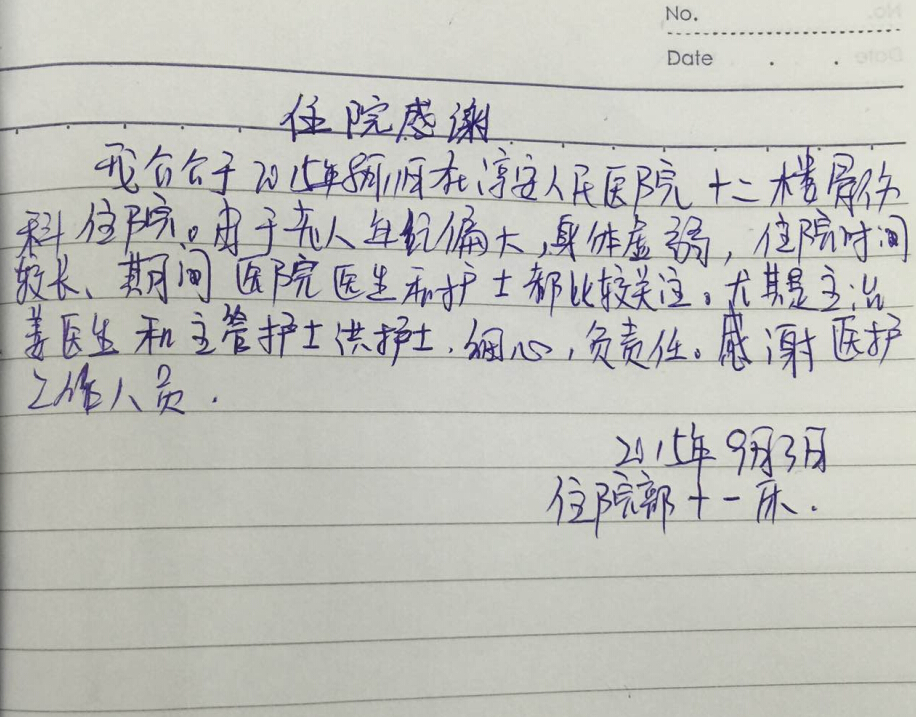 No.
Date
住院感谢
我爷爷于2015年8月 在淳安人民医院十二楼骨伤
科住院。由于老人年纪偏大,身体虚弱,住院时间
较长、期间医院医生和护士都比较关注。尤其是主治
姜医生和主管护士洪护士,细心,负责任。感谢医护
工作人员.
2015年9月3日
住院部十一床.